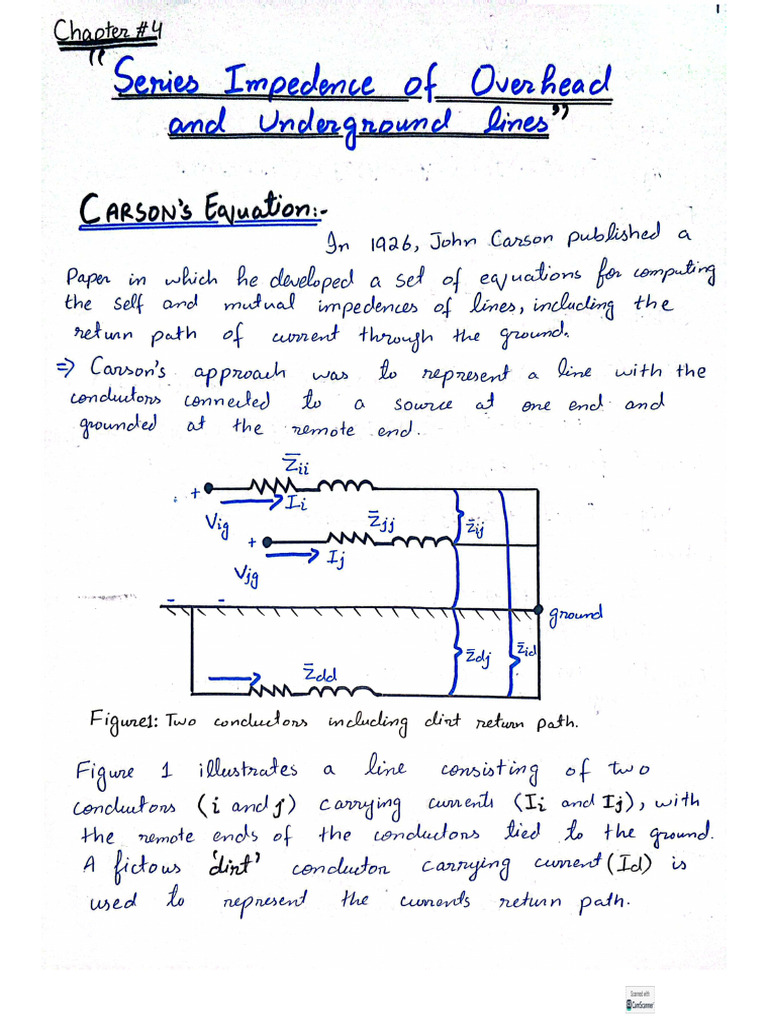 1
Chapter #4
"Series Impedence of Overhead
and Underground lines"
CARSON'S Equation:-
In 1926, John Carson published a
Paper in which he developed a set of equations for computing
the self and mutual impedences of lines, including the
return path of current through the ground.
⇒ Carson's approach was to represent a line with the
conductors connected to a source at one end and
grounded at the remote end.
Z̄ii
+
Ii
Vig
Z̄jj
z̄ij
+
Ij
Vjg
- -
ground
z̄dj
z̄id
Z̄dd
Figure1: Two conductors including dirt return path.
Figure 1 illustrates a line consisting of two
conductors (i and j) carrying currents (Ii and Ij), with
the remote ends of the conductors tied to the ground.
A fictous 'dirt' conductor carrying current (Id) is
used to represent the currents return path.
Scanned with
CamScanner